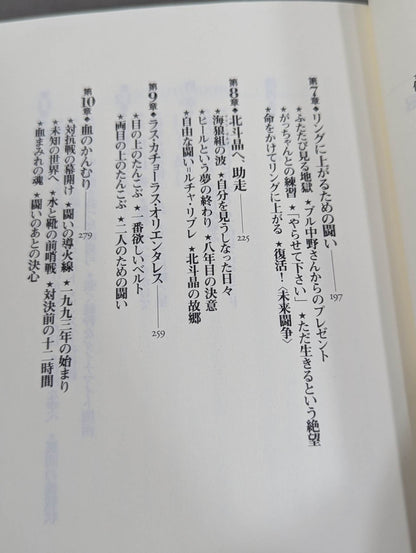 第7章◆リングに上がるための闘い——197
★ふたたび見る地獄 ★ブル中野さんからのプレゼント
★がっちゃんとの練習 ★「やらせて下さい」 ★ただ生きるという絶望
★命をかけてリングに上がる ★復活!〈未来闘争〉
第8章◆北斗晶へ、助走——225
★海狼組の波 ★自分を見うしなった日々
★ヒールという夢の終わり ★八年目の決意
★自由な闘い=ルチャ・リブレ ★北斗晶の故郷
第9章◆ラス・カチョーラス・オリエンタレス——259
★目の上のたんこぶ ★一番欲しいベルト
★両目の上のたんこぶ ★二人のための闘い
第10章◆血のかんむり——279
★対抗戦の幕開け ★闘いの導火線 ★一九九三年の始まり
★未知の世界へ ★水と靴の前哨戦 ★対決前の十二時間
★血まみれの魂 ★闘いのあとの決心